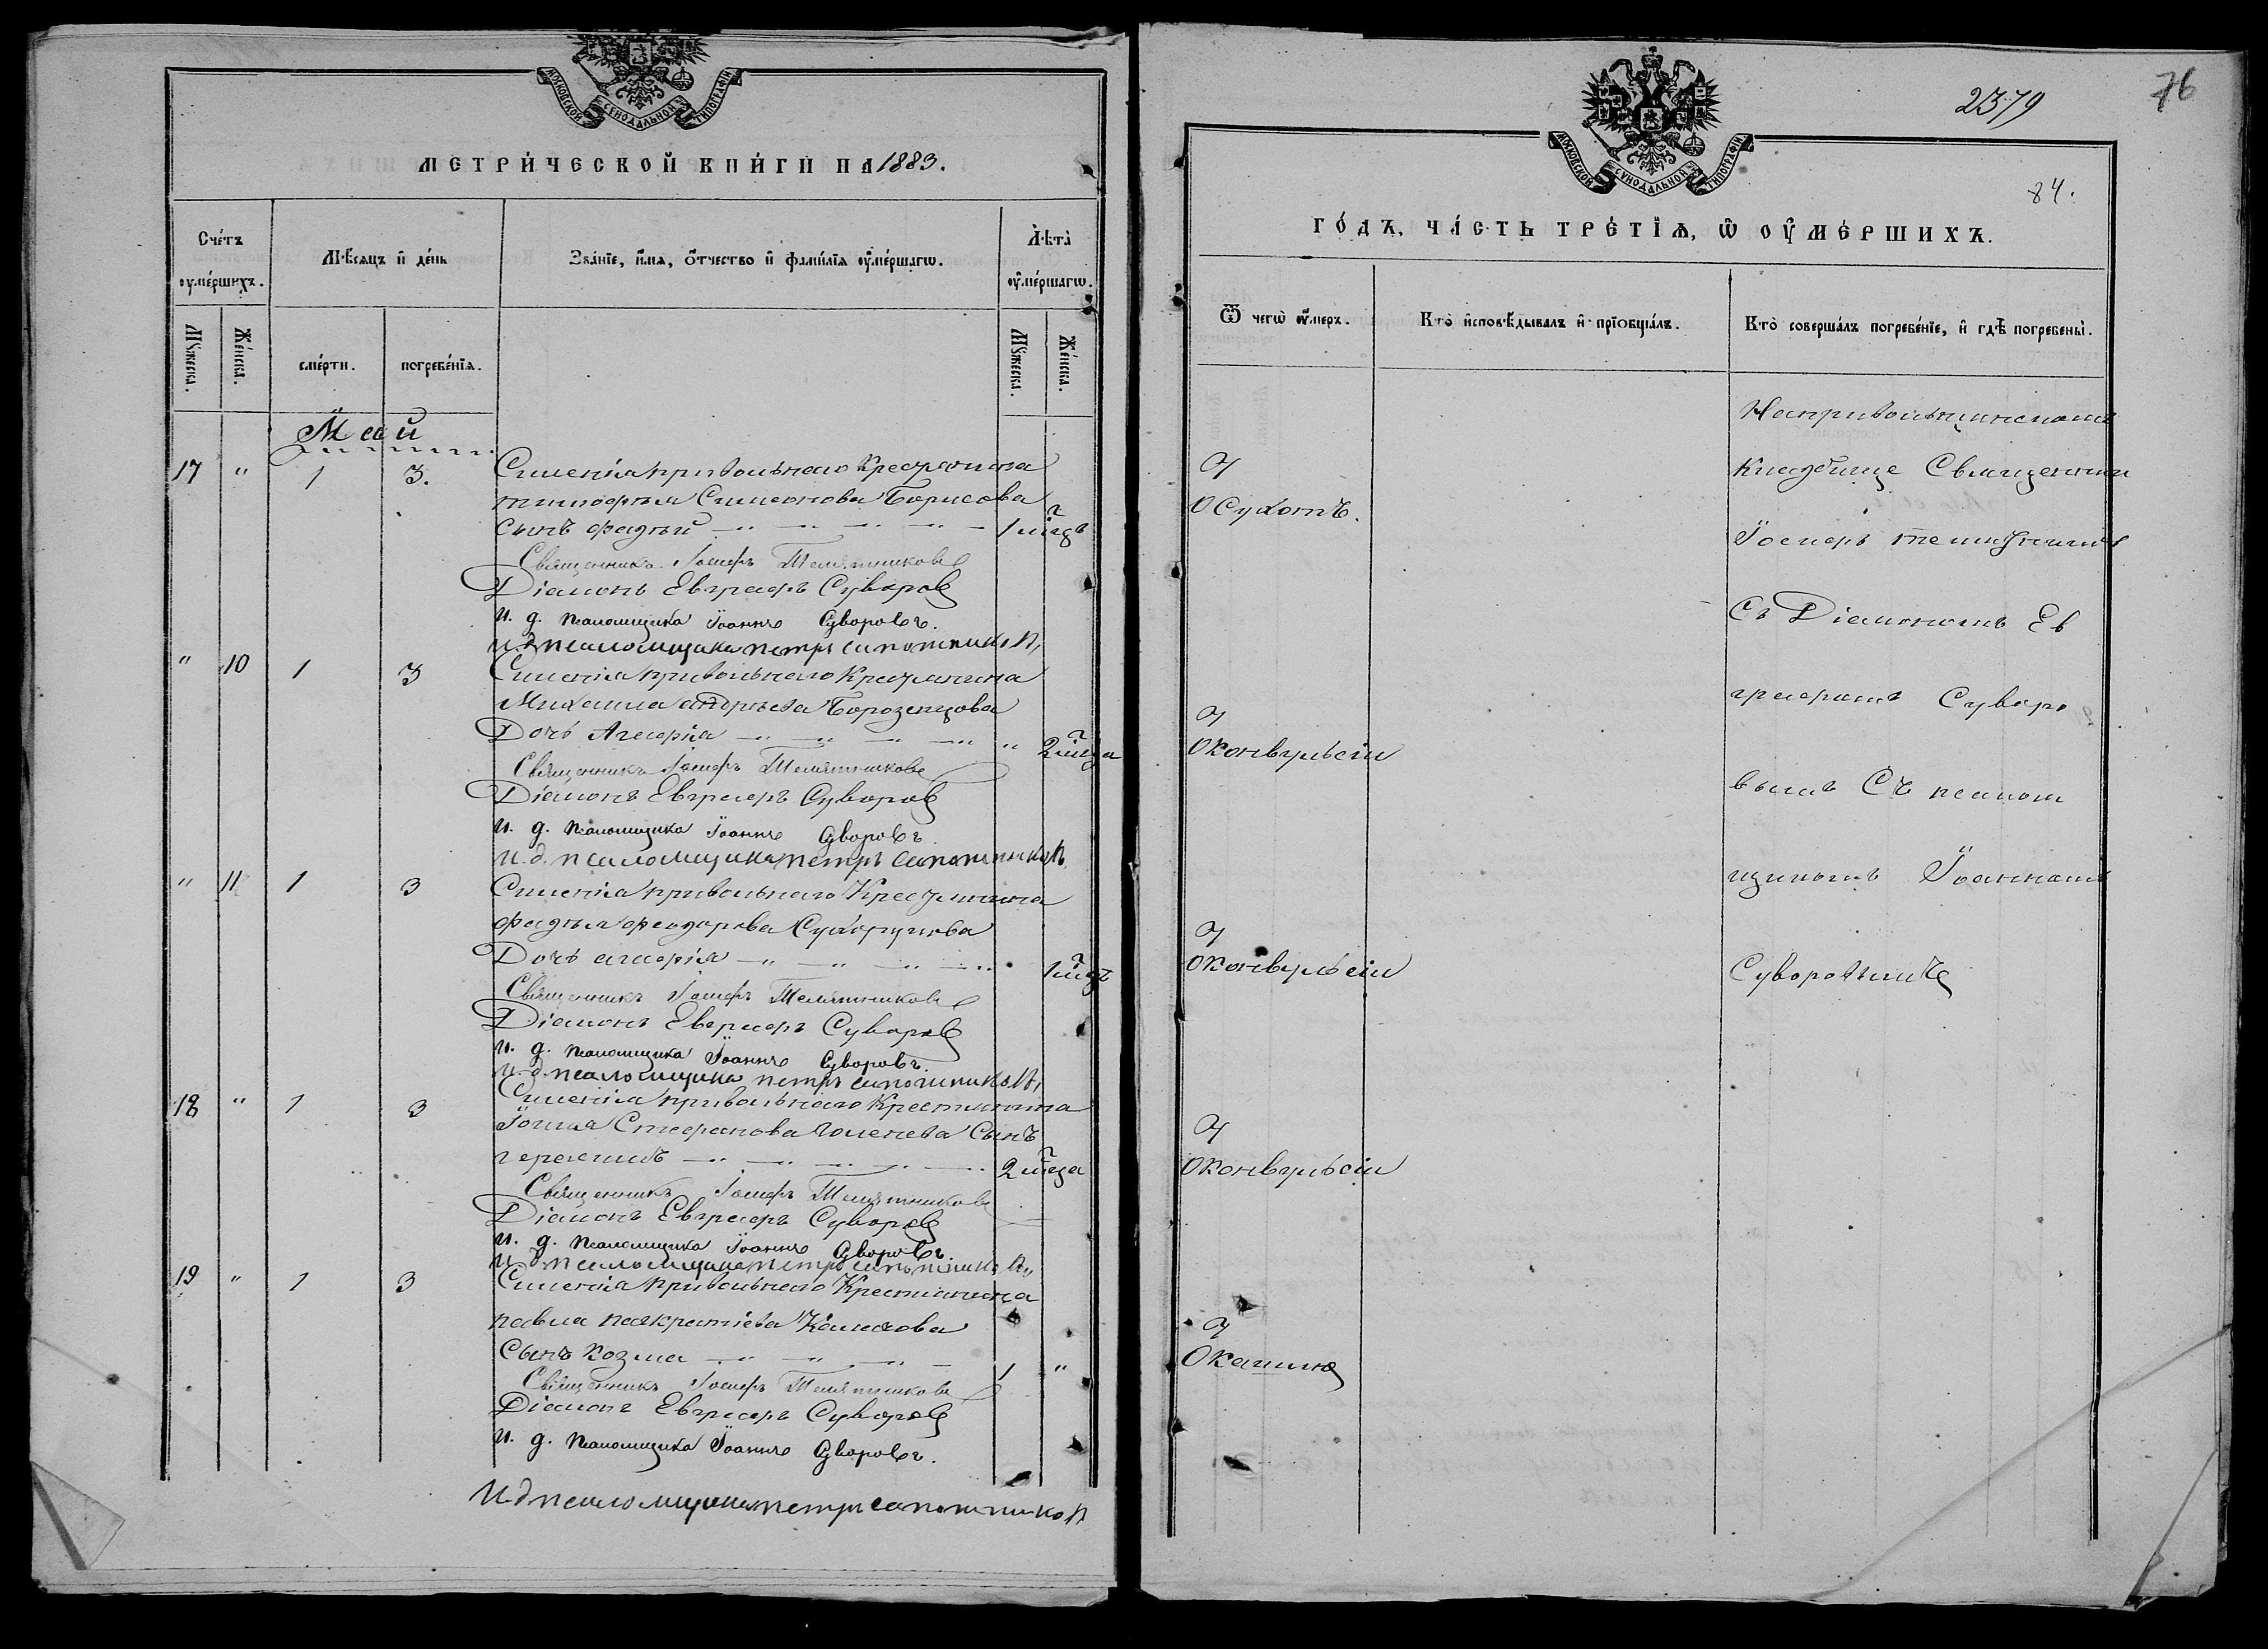 МОСКОВСКОЙ СУНОДАЛЬНОЙ ТИПОГРАФІИ
МЕТРИ́ЧЕСКОЙ КНИ́ГИ НА 1883.
Сче́тъ ᲂу҆ме́ршихъ.
Мѣ́сяцъ и҆ де́нь
Зва́нїе, и҆́мѧ, ѻ҆́тчество и҆ фамѵ́лїѧ ᲂу҆ме́ршагѡ.
Лѣ́та ᲂу҆ме́ршагѡ.
Мꙋ́жеска.
Же́нска.
сме́рти.
погребе́нїѧ.
Мꙋ́жеска.
Же́нска.
Май
17 " 1 3. Селенія привольнаго Крестянина
тимофея Симонова Борисова
сынъ фадѣй 1 мцъ
Священникъ Іосифъ Телятниковъ
Діаконъ Евграфъ Суворов
и. д. псаломщика Іоаннъ Суворовъ.
и.д псаломщика петръ сапожников
" 10 1 3 Селенія привольнаго Крестянина
Михаила андрѣева Борозенцова
Дочь Агафія " 2 мца
Священникъ Іосифъ Телятниковъ
Діаконъ Евграфъ Суворов
и. д. псаломщика Іоаннъ Суворовъ
и.д. псаломщика петръ сапожников
" 11 1 3 Селенія привольнаго Крестянина
фадѣя феодорова Сухорукова
Дочь агафія 1 мцъ
Священникъ Іосифъ Телятниковъ
Діаконъ Евграфъ Суворов
и. д. псаломщика Іоаннъ Суворовъ.
и.д. псаломщика петръ сапожников
18 " 1 3 Селенія привольнаго Крестянина
Стефанова Сынъ
герасимъ 2 мца
Священникъ Іосифъ Телятниковъ
Діаконъ Евграфъ Суворов
и. д. псаломщика Іоаннъ Суворовъ.
и д псаломщика петръ сапожников
19 " 1 3 Селенія привольнаго Крестианина
павла панкратіева
Сынъ Козма 1 "
Священникъ Іосифъ Телятниковъ
Діаконъ Евграфъ Суворов
и. д. псаломщика Іоаннъ Суворовъ.
и.д псаломщика петръ сапожников
76
2379
84.
МОСКОВСКОЙ СУНОДАЛЬНОЙ ТИПОГРАФІИ
ГО́ДЪ, ЧА́СТЬ ТРЕ́ТЇѦ, Ѡ҆ ОУ҆МЕ́РШИХЪ.
Ѿ чегѡ̀ ᲂу҆́меръ.
Кто̀ и҆сповѣ́дывалъ и҆ прїѡбща́лъ.
Кто̀ соверша́лъ погребе́нїе, и҆ гдѣ̀ погребены̀.
На привольнинскомъ
Кладбище Священники
Іосифъ
Съ Діакономъ Ев
графомъ Суворо
вымъ Съ псалом
щикомъ Іоанномъ
Суворовымъ
О Сухотъ.
О Конвульсіи
О Конвульсіи
О Конвульсіи
О Кашлю